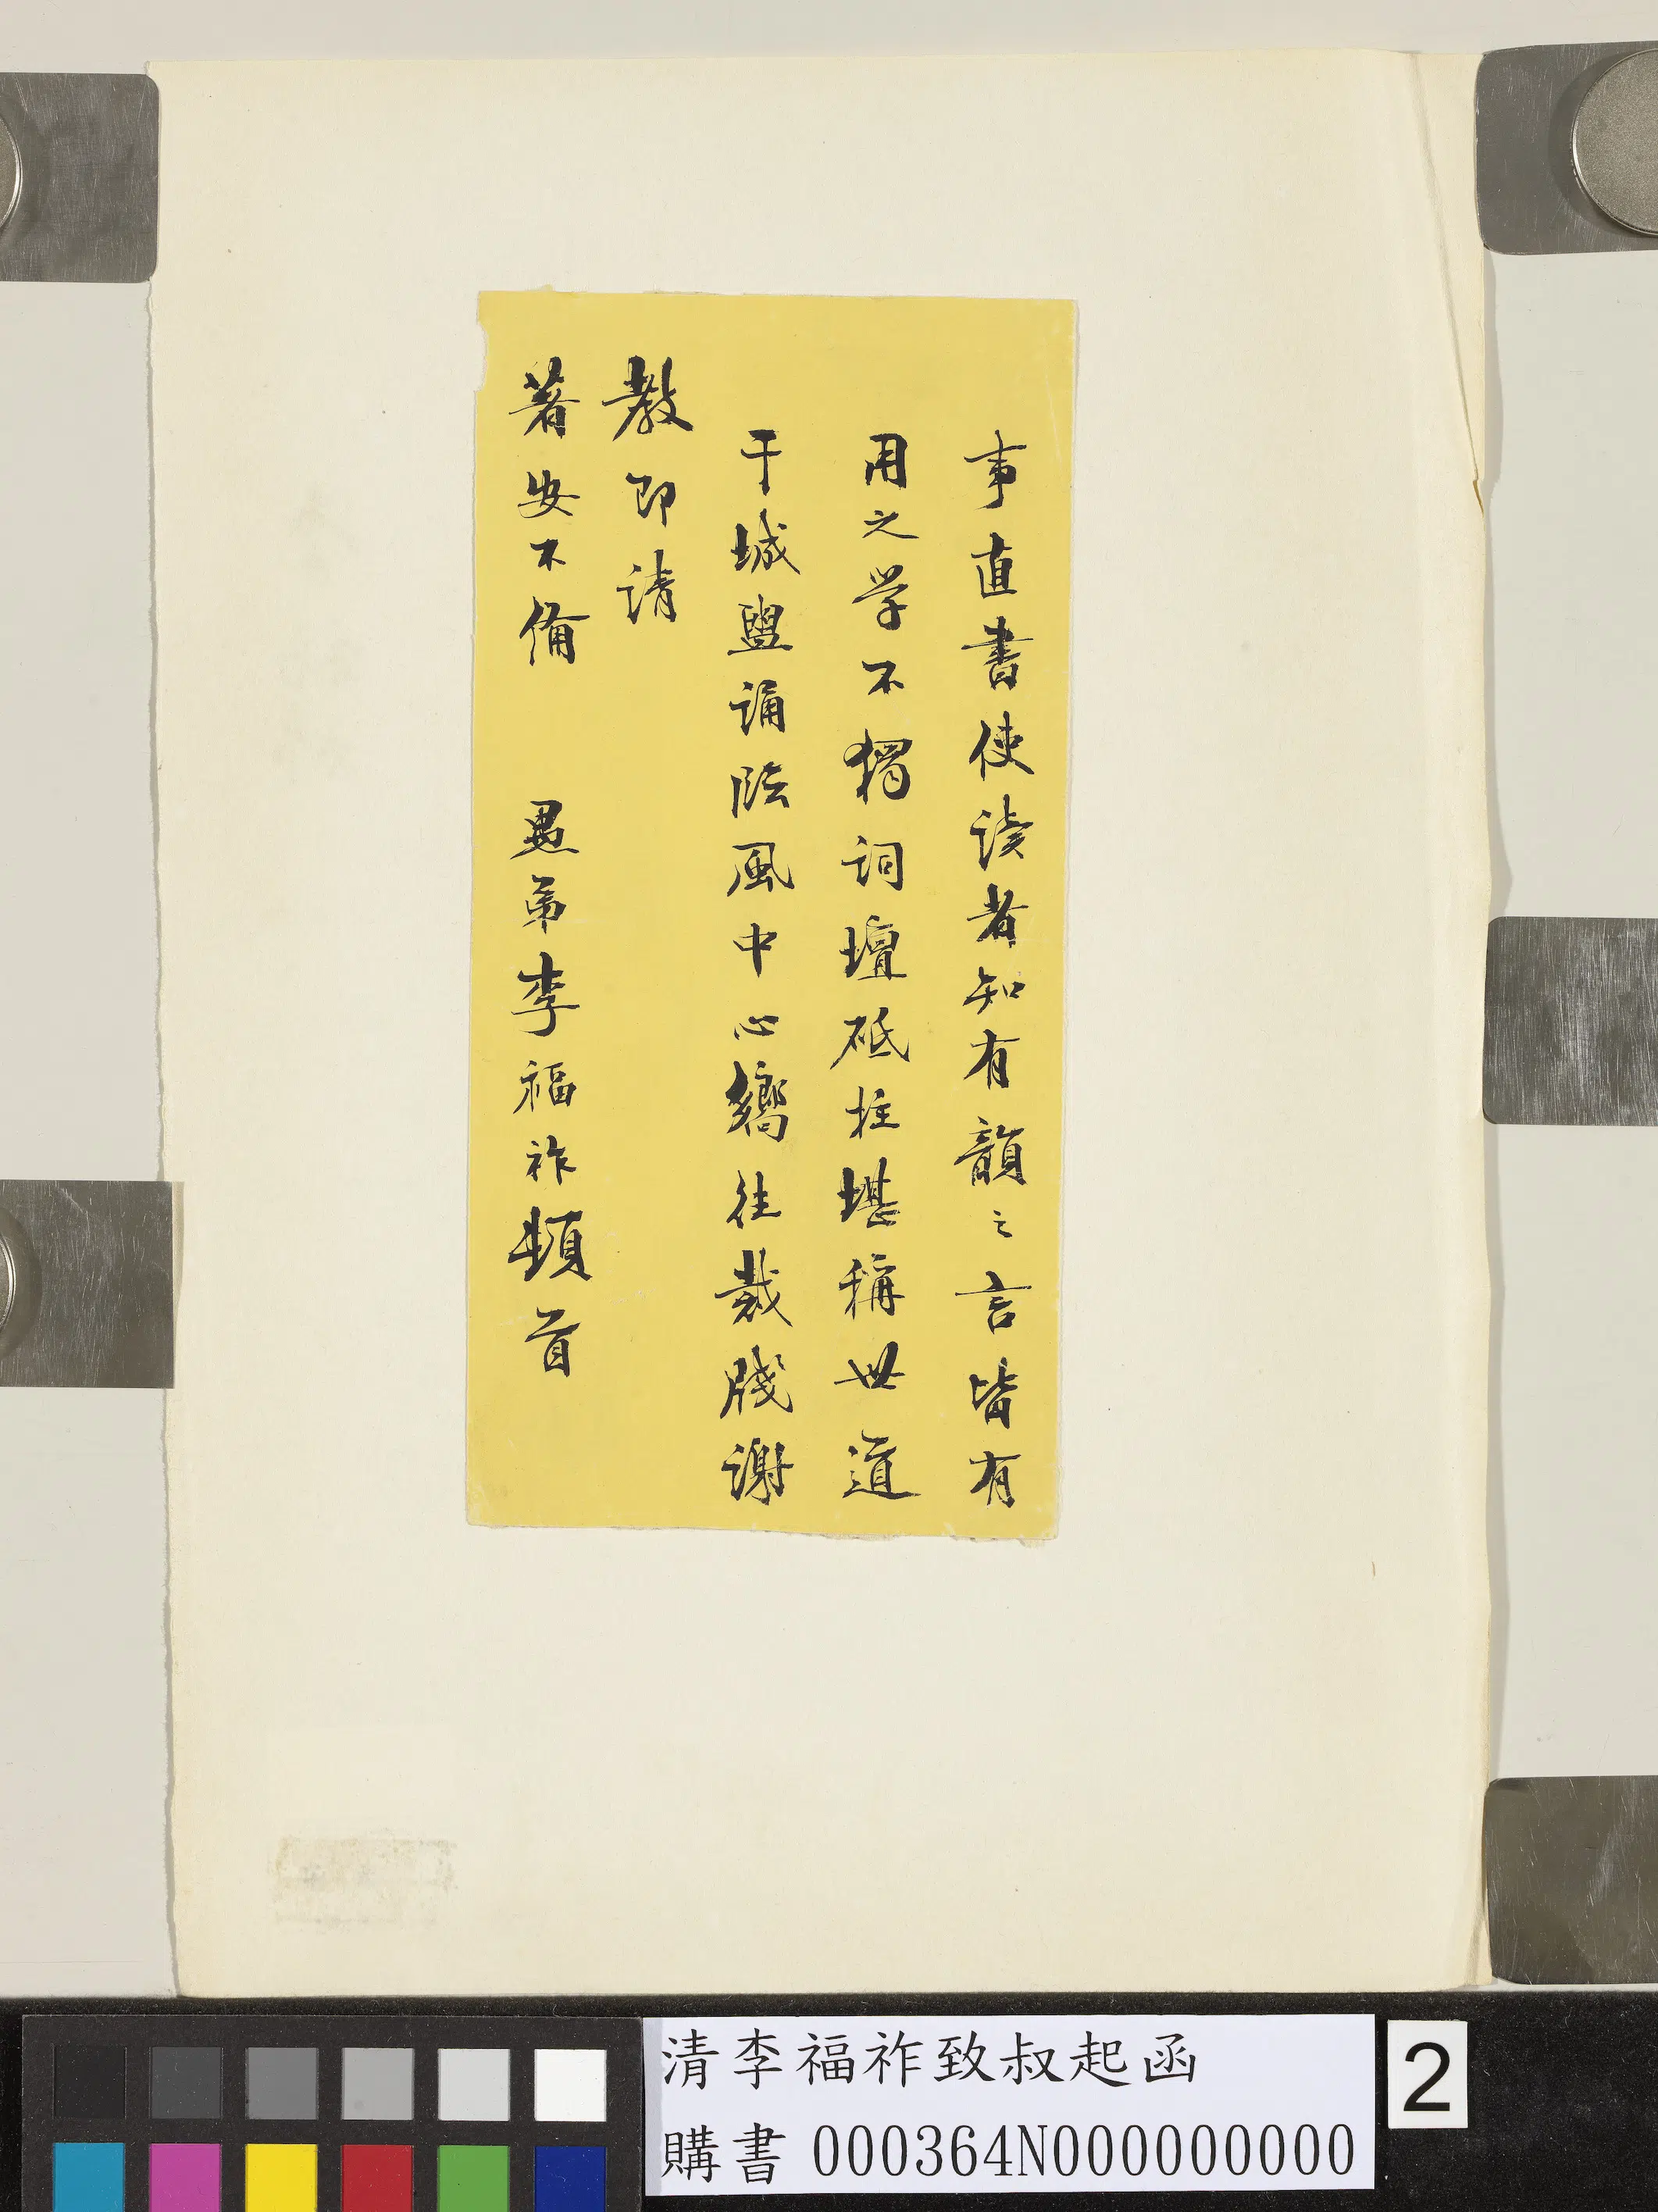 事直書使讀者知有韻之言皆有
用之学不獨詞壇砥柱堪稱世道
干城盥誦臨風中心嚮往裁牋謝
教即請
著安不備 愚弟李福祚頓首
清李福祚致叔起函
購書 000364N000000000
2